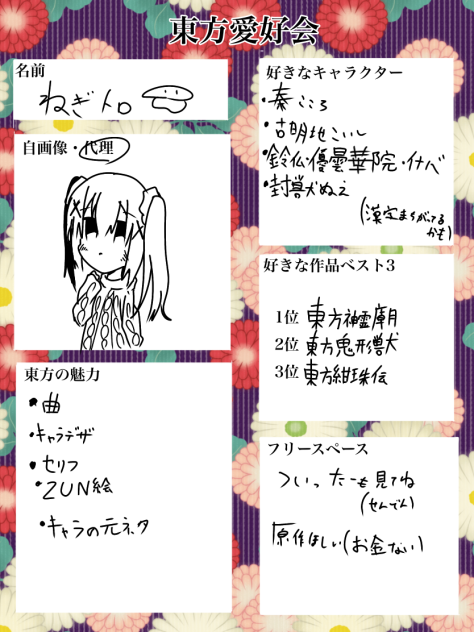 東方愛好会
名前
ねぎトロ
自画像・代理
東方の魅力
・曲
・キャラデザ
・セリフ
・ZUN絵
・キャラの元ネタ
好きなキャラクター
・秦こころ
・古明地こいし
・鈴仙・優曇華院・イナバ
・封獣ぬえ
(漢字まちがってる
かも)
好きな作品ベスト3
1位 東方神霊廟
2位 東方鬼形獣
3位 東方紺珠伝
フリースペース
ついったーも見てね
(せんでん)
原作ほしい(お金ない)